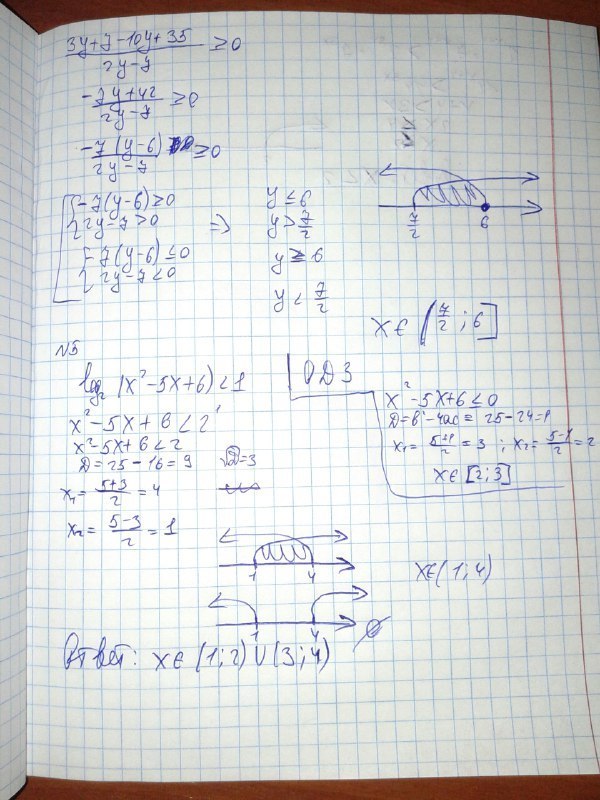 3y+7-10y+35 / 2y-7 ≥0
-7y+42 / 2y-7 ≥0
-7(y-6) / 2y-7 ≥0
-7(y-6)≥0
2y-7>0
-7(y-6)≤0
2y-7<0
=>
y≤6
y>7/2
y≥6
y<7/2
7/2 6
x∈(7/2;6]
N5
log₂(x²-5x+6)<1
x²-5x+6<2¹
x²-5x+6<2
D=25-16=9 √D=3
x₁=5+3/2=4
x₂=5-3/2=1
ОДЗ
x²-5x+6≤0
D=b²-4ac=25-24=1
x₁=5+1/2=3; x₂=5-1/2=2
x∈[2;3]
1 4
x∈(1;4)
1 4 ∅
Ответ: x∈(1;2)U(3;4)